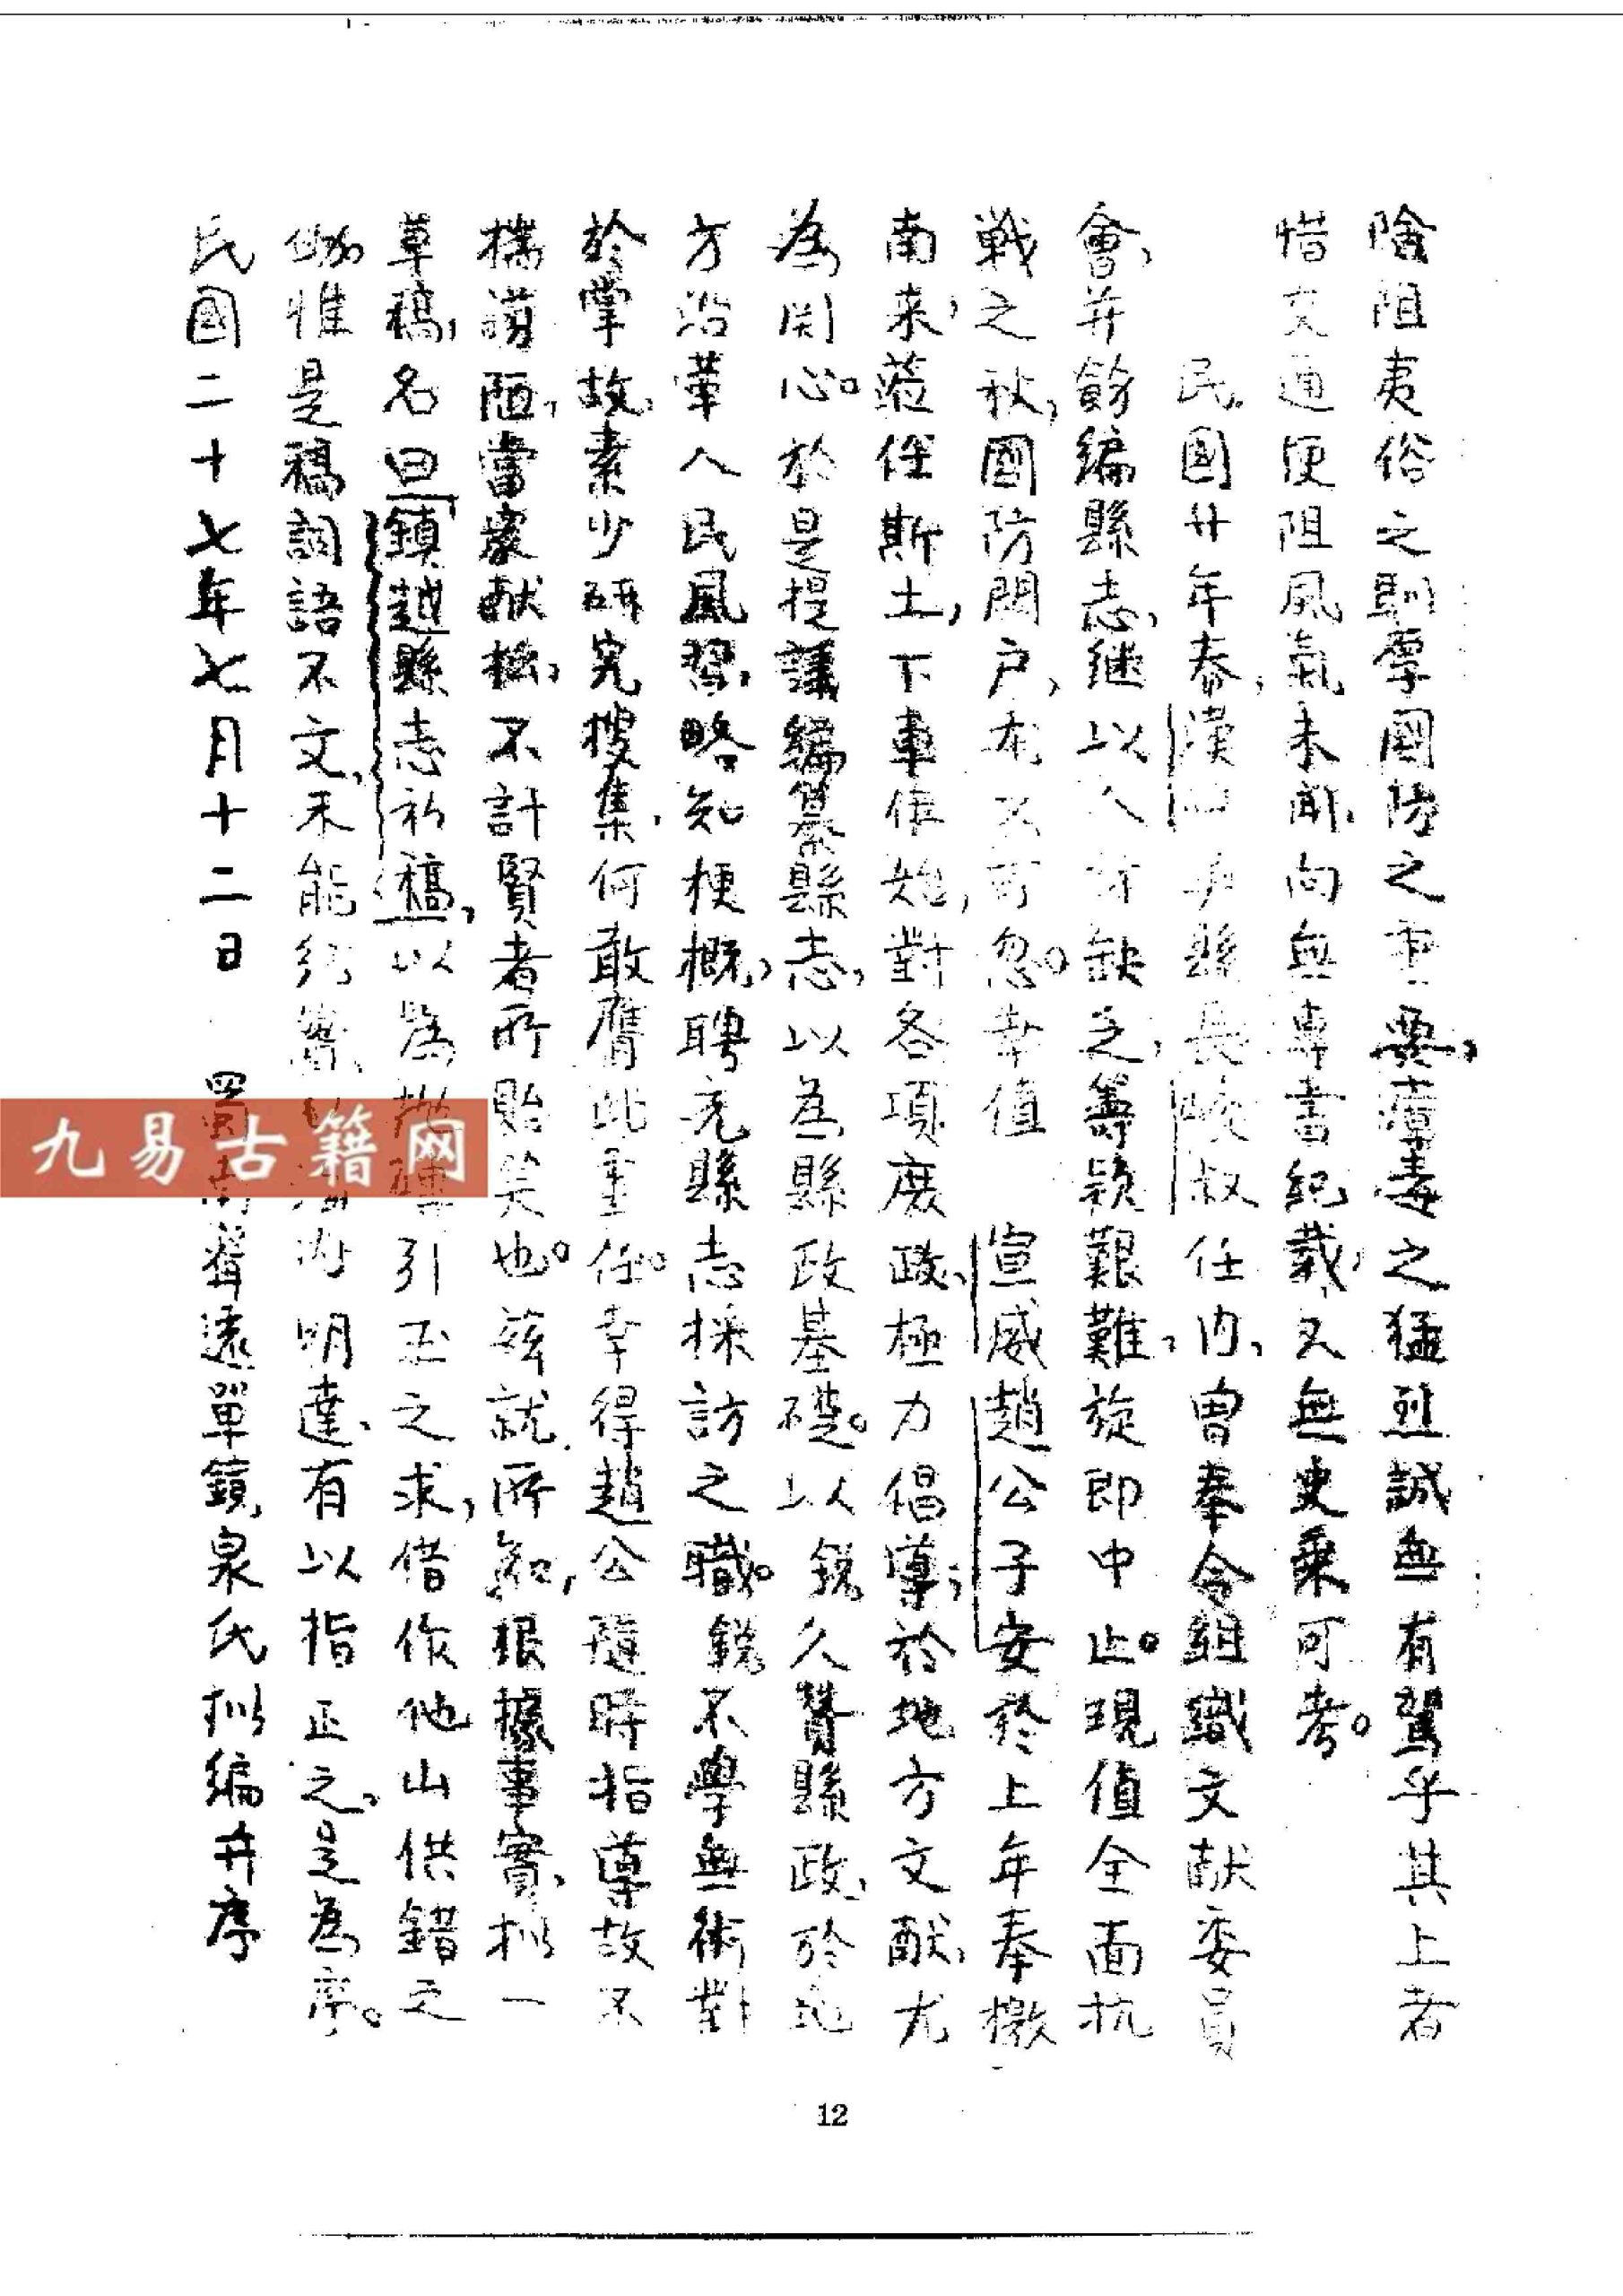 險阻夷俗之馴厚國防之重要，瘴毒之猛烈誠無有駕乎其上者
惜交通便阻風氣未開、向無專書紀載，又無史乘可考。
民國廿年春，漢縣長叔任内、曾奉令組織文献委員
會，并飭編縣志，継以人材缺乏，籌欵艱難，旋即中止。現值全面抗
戰之秋，國防門户，尤不可忽。幸值 宣威趙公子安於上年奉檄
南来，蒞任斯土，下車伊始，對各項庶政、極力倡導；於地方文献、尤
為関心。於是提議編纂縣志，以為縣政基礎。以鏡久贊縣政、於地
方沿革人民風習，略知梗概，聘充縣志採訪之職。鏡不學無術對
於掌故，素少研究搜集，何敢膺此重任。幸得趙公隨時指導故不
揣謭陋，當衆献拙，不計賢者所貽笑也。兹就所知，根據事實，拟一
草稿，名曰鎮越縣志初稿，以為引玉之求，借作他山供錯之
惟是稿詞語不文，未能内明達、有以指正之。是為序。
民國二十七年七月十二日 單鏡泉氏拟編并序
12
九易古籍网